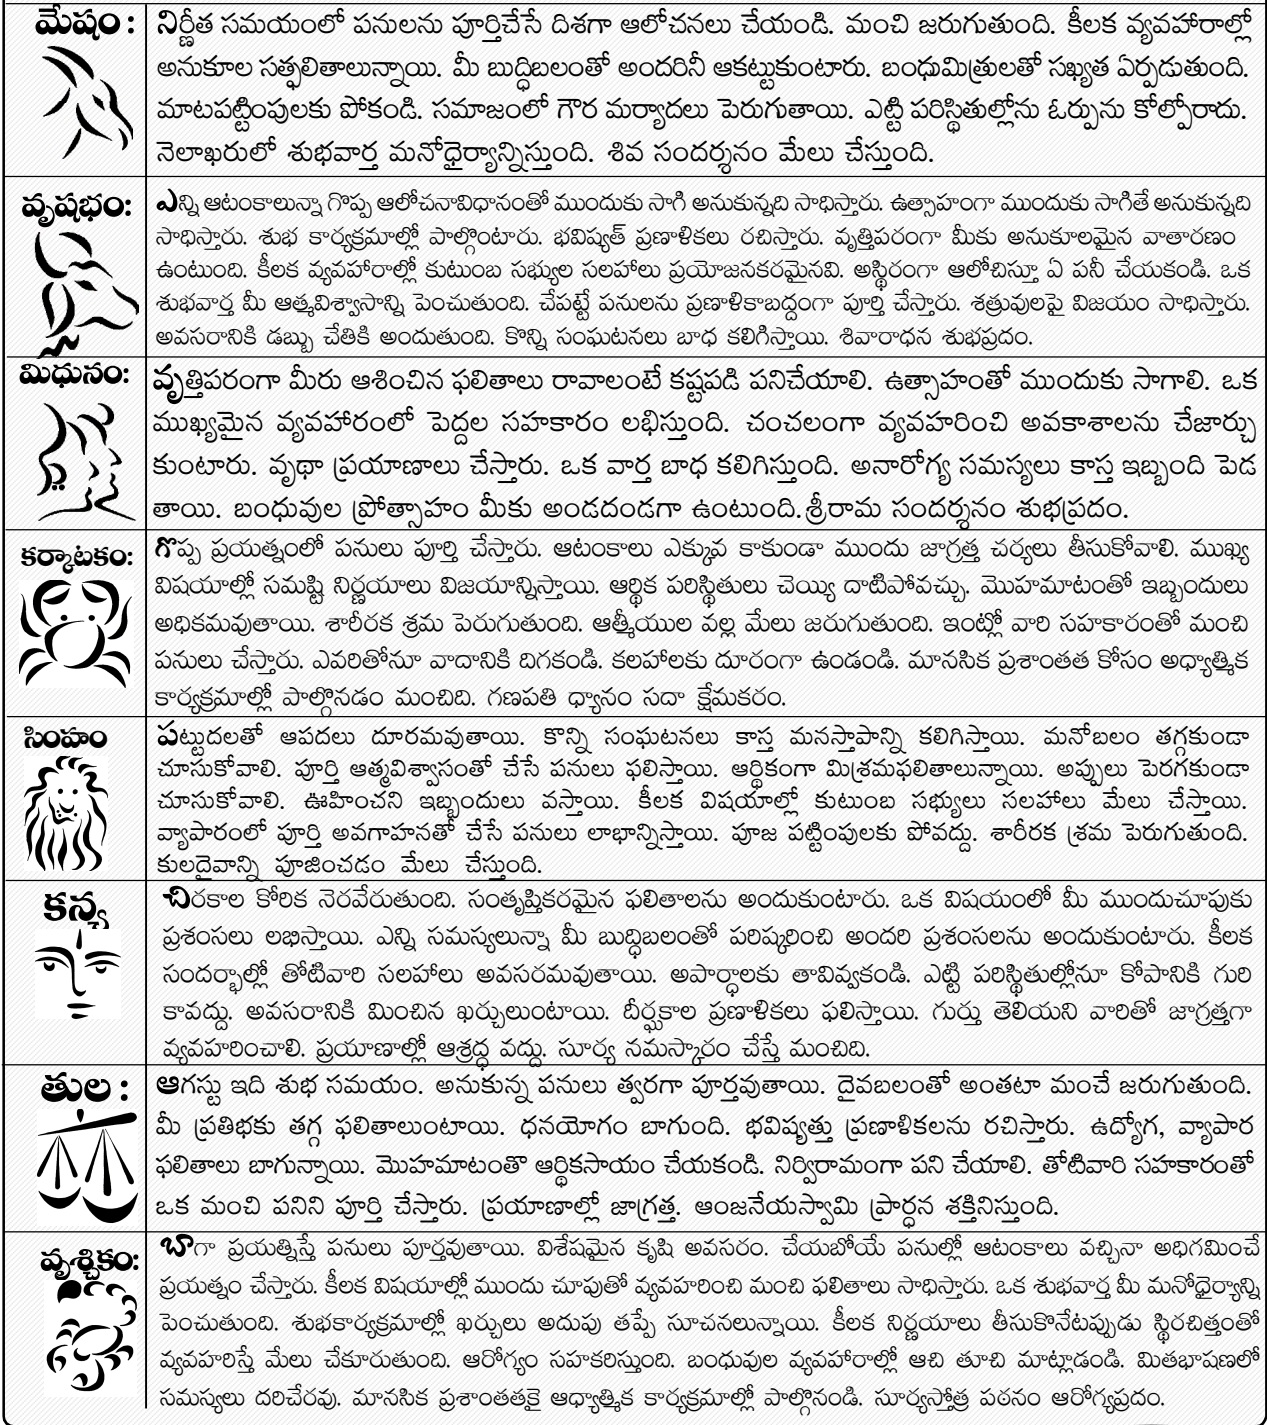 మేషం :
నిర్ణీత సమయంలో పనులను పూర్తిచేసే దిశగా ఆలోచనలు చేయండి. మంచి జరుగుతుంది. కీలక వ్యవహారాల్లో
అనుకూల సత్ఫలితాలున్నాయి. మీ బుద్ధిబలంతో అందరినీ ఆకట్టుకుంటారు. బంధుమిత్రులతో సఖ్యత ఏర్పడుతుంది.
మాటపట్టింపులకు పోకండి. సమాజంలో గౌర మర్యాదలు పెరుగుతాయి. ఎట్టి పరిస్థితుల్లోను ఓర్పును కోల్పోరాదు.
నెలాఖరులో శుభవార్త మనోధైర్యాన్నిస్తుంది. శివ సందర్శనం మేలు చేస్తుంది.
వృషభం:
ఎన్ని ఆటంకాలున్నా గొప్ప ఆలోచనావిధానంతో ముందుకు సాగి అనుకున్నది సాధిస్తారు. ఉత్సాహంగా ముందుకు సాగితే అనుకున్నది
సాధిస్తారు. శుభ కార్యక్రమాల్లో పాల్గొంటారు. భవిష్యత్ ప్రణాళికలు రచిస్తారు. వృత్తిపరంగా మీకు అనుకూలమైన వాతారణం
ఉంటుంది. కీలక వ్యవహారాల్లో కుటుంబ సభ్యుల సలహాలు ప్రయోజనకరమైనవి. అస్థిరంగా ఆలోచిస్తూ ఏ పనీ చేయకండి. ఒక
శుభవార్త మీ ఆత్మవిశ్వాసాన్ని పెంచుతుంది. చేపట్టే పనులను ప్రణాళికాబద్ధంగా పూర్తి చేస్తారు. శత్రువులపై విజయం సాధిస్తారు.
అవసరానికి డబ్బు చేతికి అందుతుంది. కొన్ని సంఘటనలు బాధ కలిగిస్తాయి. శివారాధన శుభప్రదం.
మిధునం:
వృత్తిపరంగా మీరు ఆశించిన ఫలితాలు రావాలంటే కష్టపడి పనిచేయాలి. ఉత్సాహంతో ముందుకు సాగాలి. ఒక
ముఖ్యమైన వ్యవహారంలో పెద్దల సహకారం లభిస్తుంది. చంచలంగా వ్యవహరించి అవకాశాలను చేజార్చు
కుంటారు. వృథా ప్రయాణాలు చేస్తారు. ఒక వార్త బాధ కలిగిస్తుంది. అనారోగ్య సమస్యలు కాస్త ఇబ్బంది పెడ
తాయి. బంధువుల ప్రోత్సాహం మీకు అండదండగా ఉంటుంది. శ్రీరామ సందర్శనం శుభప్రదం.
కర్కాటకం:
గొప్ప ప్రయత్నంలో పనులు పూర్తి చేస్తారు. ఆటంకాలు ఎక్కువ కాకుండా ముందు జాగ్రత్త చర్యలు తీసుకోవాలి. ముఖ్య
విషయాల్లో సమష్టి నిర్ణయాలు విజయాన్నిస్తాయి. ఆర్థిక పరిస్థితులు చెయ్యి దాటిపోవచ్చు. మొహమాటంతో ఇబ్బందులు
అధికమవుతాయి. శారీరక శ్రమ పెరుగుతుంది. ఆత్మీయుల వల్ల మేలు జరుగుతుంది. ఇంట్లో వారి సహకారంతో మంచి
పనులు చేస్తారు. ఎవరితోనూ వాదానికి దిగకండి. కలహాలకు దూరంగా ఉండండి. మానసిక ప్రశాంతత కోసం అధ్యాత్మిక
కార్యక్రమాల్లో పాల్గొనడం మంచిది. గణపతి ధ్యానం సదా క్షేమకరం.
సింహం
పట్టుదలతో ఆపదలు దూరమవుతాయి. కొన్ని సంఘటనలు కాస్త మనస్తాపాన్ని కలిగిస్తాయి. మనోబలం తగ్గకుండా
చూసుకోవాలి. పూర్తి ఆత్మవిశ్వాసంతో చేసే పనులు ఫలిస్తాయి. ఆర్థికంగా మిశ్రమఫలితాలున్నాయి. అప్పులు పెరగకుండా
చూసుకోవాలి. ఊహించని ఇబ్బందులు వస్తాయి. కీలక విషయాల్లో కుటుంబ సభ్యులు సలహాలు మేలు చేస్తాయి.
వ్యాపారంలో పూర్తి అవగాహనతో చేసే పనులు లాభాన్నిస్తాయి. పూజ పట్టింపులకు పోవద్దు. శారీరక శ్రమ పెరుగుతుంది.
కులదైవాన్ని పూజించడం మేలు చేస్తుంది.
కన్య
చిరకాల కోరిక నెరవేరుతుంది. సంతృప్తికరమైన ఫలితాలను అందుకుంటారు. ఒక విషయంలో మీ ముందుచూపుకు
ప్రశంసలు లభిస్తాయి. ఎన్ని సమస్యలున్నా మీ బుద్ధిబలంతో పరిష్కరించి అందరి ప్రశంసలను అందుకుంటారు. కీలక
సందర్భాల్లో తోటివారి సలహాలు అవసరమవుతాయి. అపార్ధాలకు తావివ్వకండి. ఎట్టి పరిస్థితుల్లోనూ కోపానికి గురి
కావద్దు. అవసరానికి మించిన ఖర్చులుంటాయి. దీర్ఘకాల ప్రణాళికలు ఫలిస్తాయి. గుర్తు తెలియని వారితో జాగ్రత్తగా
వ్యవహరించాలి. ప్రయాణాల్లో ఆశ్రద్ధ వద్దు. సూర్య నమస్కారం చేస్తే మంచిది.
తుల :
ఆగస్టు ఇది శుభ సమయం. అనుకున్న పనులు త్వరగా పూర్తవుతాయి. దైవబలంతో అంతటా మంచే జరుగుతుంది.
మీ ప్రతిభకు తగ్గ ఫలితాలుంటాయి. ధనయోగం బాగుంది. భవిష్యత్తు ప్రణాళికలను రచిస్తారు. ఉద్యోగ, వ్యాపార
ఫలితాలు బాగున్నాయి. మొహమాటంతొ ఆర్థికసాయం చేయకండి. నిర్విరామంగా పని చేయాలి. తోటివారి సహకారంతో
ఒక మంచి పనిని పూర్తి చేస్తారు. ప్రయాణాల్లో జాగ్రత్త. ఆంజనేయస్వామి ప్రార్ధన శక్తినిస్తుంది.
వృశ్చికం:
బాగా ప్రయత్నిస్తే పనులు పూర్తవుతాయి. విశేషమైన కృషి అవసరం. చేయబోయే పనుల్లో ఆటంకాలు వచ్చినా అధిగమించే
ప్రయత్నం చేస్తారు. కీలక విషయాల్లో ముందు చూపుతో వ్యవహరించి మంచి ఫలితాలు సాధిస్తారు. ఒక శుభవార్త మీ మనోధైర్యాన్ని
పెంచుతుంది. శుభకార్యక్రమాల్లో ఖర్చులు అదుపు తప్పే సూచనలున్నాయి. కీలక నిర్ణయాలు తీసుకొనేటప్పుడు స్థిరచిత్తంతో
వ్యవహరిస్తే మేలు చేకూరుతుంది. ఆరోగ్యం సహకరిస్తుంది. బంధువుల వ్యవహారాల్లో ఆచి తూచి మాట్లాడండి. మితభాషణలో
సమస్యలు దరిచేరవు. మానసిక ప్రశాంతతకై ఆధ్యాత్మిక కార్యక్రమాల్లో పాల్గొనండి. సూర్యస్తోత్ర పఠనం ఆరోగ్యప్రదం.